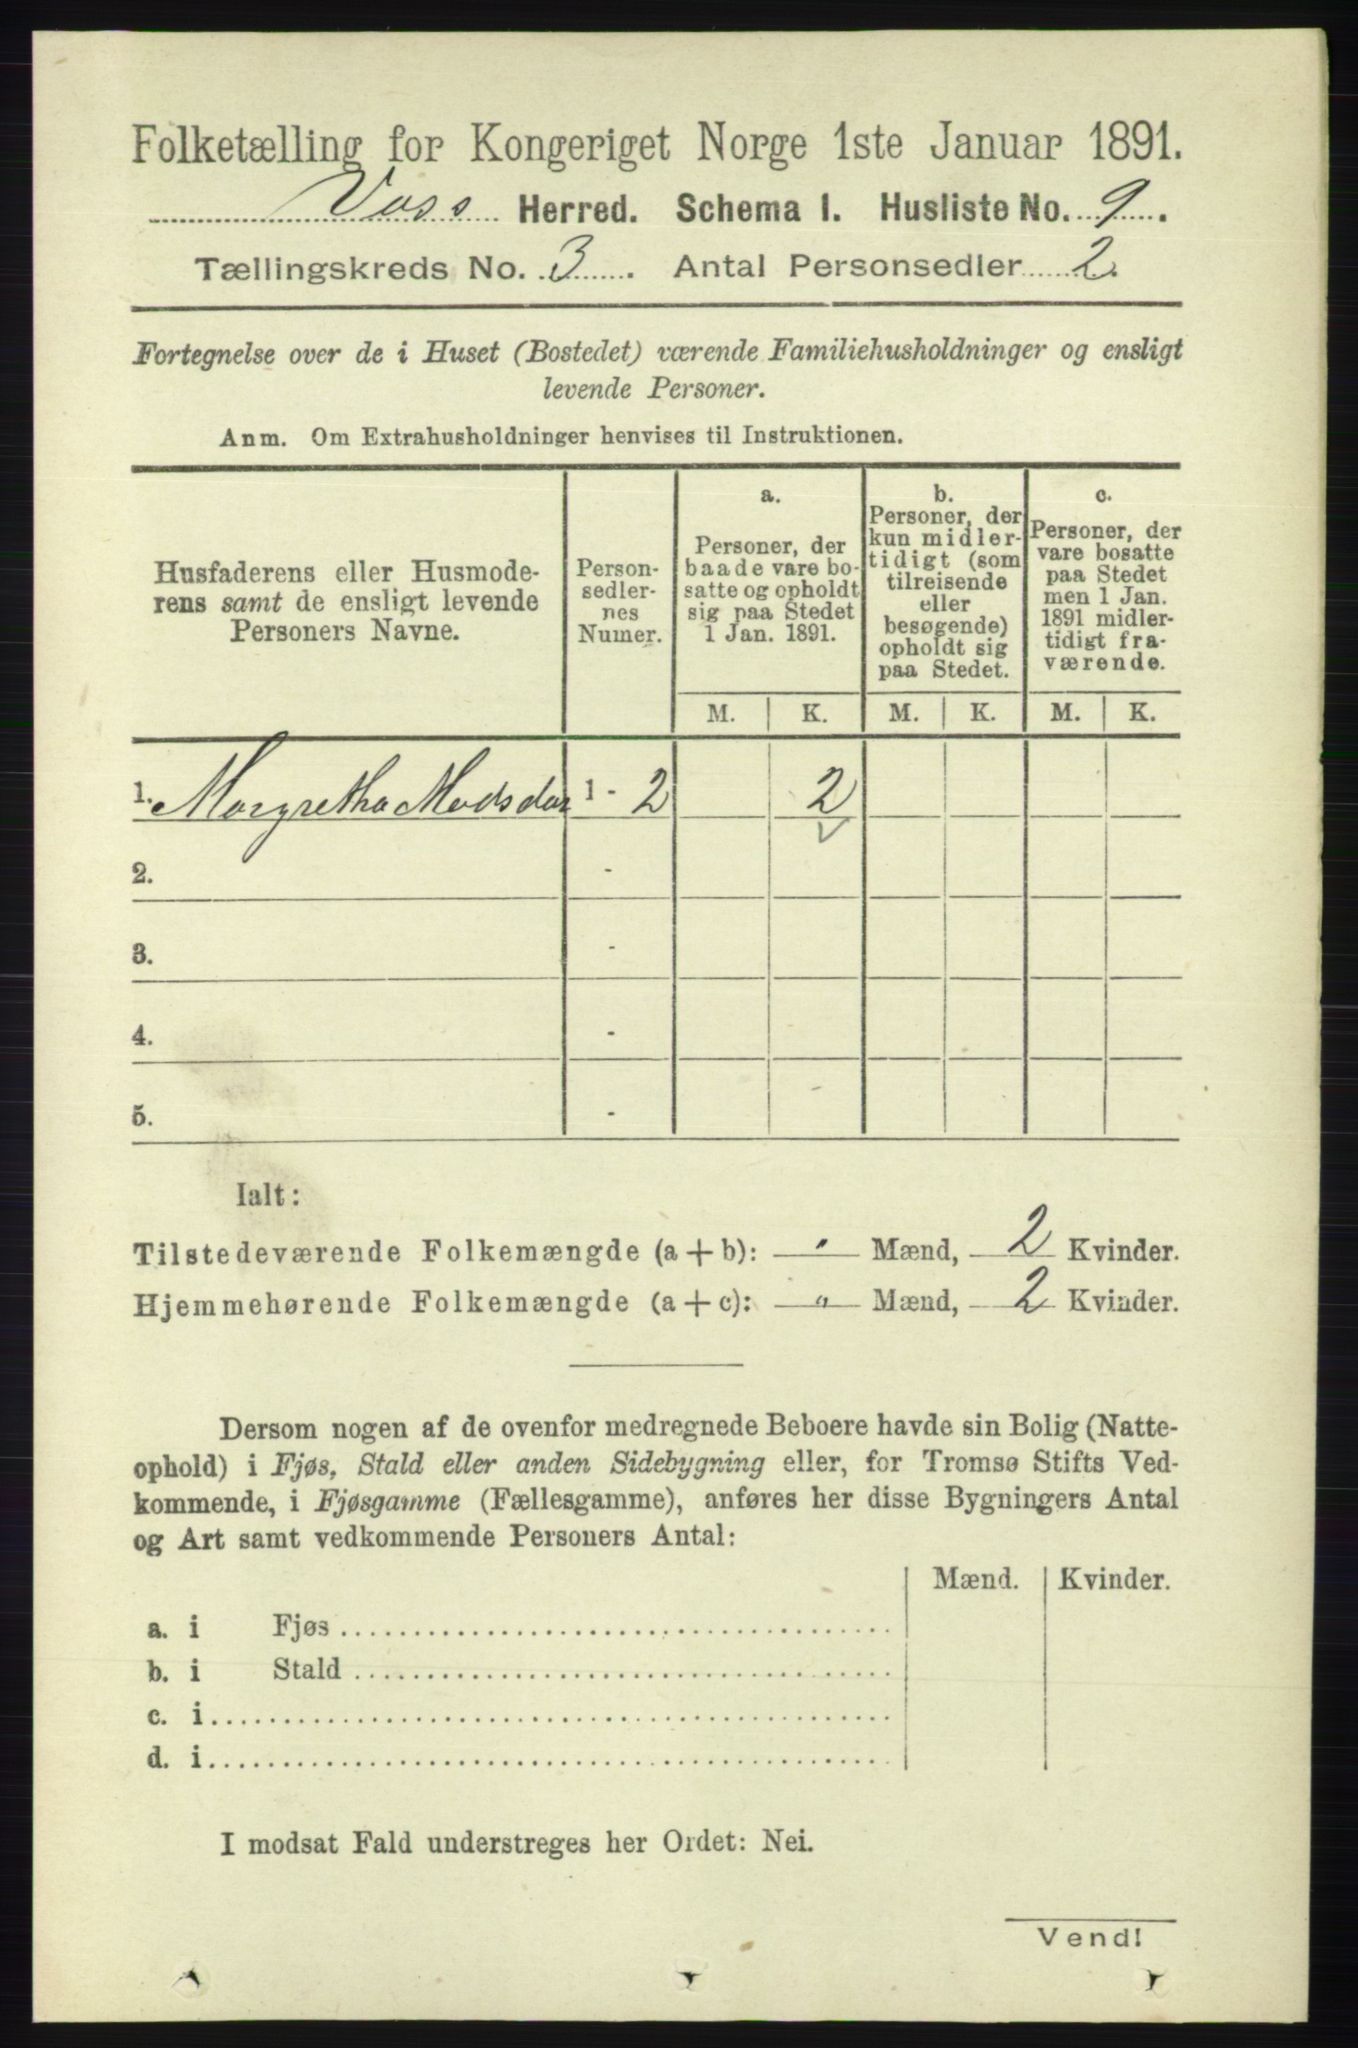 Folketælling for Kongeriget Norge 1ste Januar 1891.
Voss Herred. Schema I. Husliste No. 9.
Tællingskreds No. 3. Antal Personsedler 2.
Fortegnelse over de i Huset (Bostedet) værende Familiehusholdninger og ensligt
levende Personer.
Anm. Om Extrahusholdninger henvises til Instruktionen.
Husfaderens eller Husmode-
rens samt de ensligt levende
Personers Navne.
Person-
sedler-
nes
Numer.
a.
Personer, der
baade vare bo-
satte og opholdt
sig paa Stedet
1 Jan. 1891.
b.
Personer, der
kun midler-
tidigt (som
tilreisende
eller
besøgende)
opholdt sig
paa Stedet.
c.
Personer, der
vare bosatte
paa Stedet
men 1 Jan.
1891 midler-
tidigt fra-
værende.
M. K. M. K. M. K.
1. Margretha Madsdar 1 - 2 2
2. -
3. -
4. -
5. -
Ialt:
Tilstedeværende Folkemængde (a + b): " Mænd, 2 Kvinder.
Hjemmehørende Folkemængde (a + c): " Mænd, 2 Kvinder.
Dersom nogen af de ovenfor medregnede Beboere havde sin Bolig (Natte-
ophold) i Fjøs, Stald eller anden Sidebygning eller, for Tromsø Stifts Ved-
kommende, i Fjøsgamme (Fællesgamme), anføres her disse Bygningers Antal
og Art samt vedkommende Personers Antal:
Mænd. Kvinder.
a. i Fjøs
b. i Stald
c. i
d. i
I modsat Fald understreges her Ordet: Nei.
Vend!